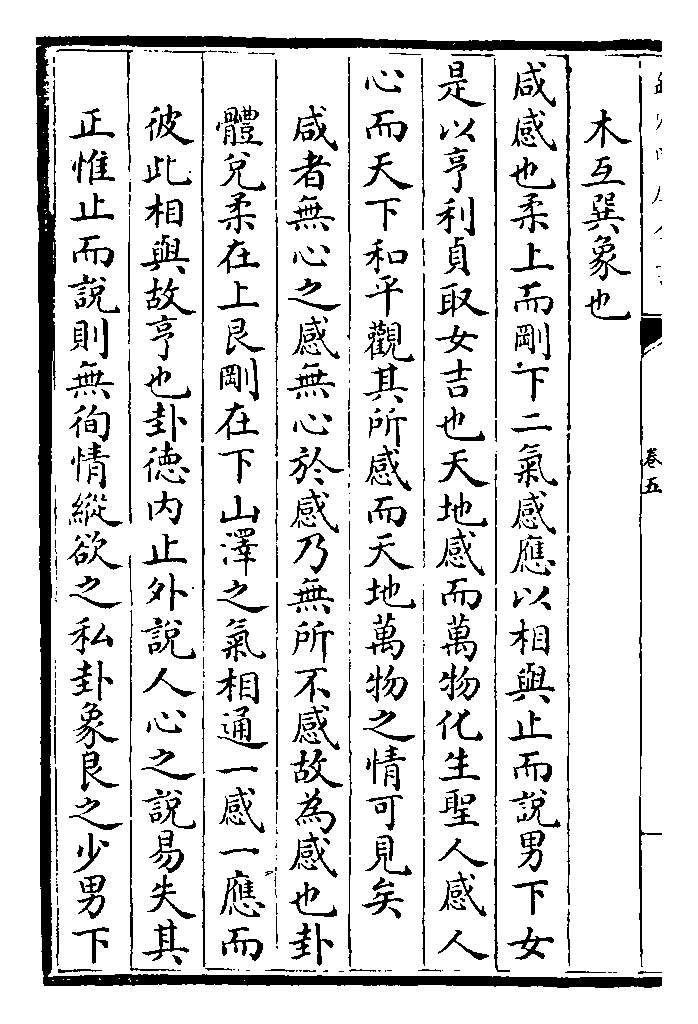 木互巽象也
咸感也柔上而剛下二氣感應以相與止而說男下女
是以亨利貞取女吉也天地感而萬物化生聖人感人
心而天下和平觀其所感而天地萬物之情可見矣
咸者無心之感無心於感乃無所不感故為感也卦
體兌柔在上艮剛在下山澤之氣相通一感一應而
彼此相與故亨也卦德内止外說人心之說易失其
正惟止而說則無徇情縱欲之私卦象艮之少男下
卷五